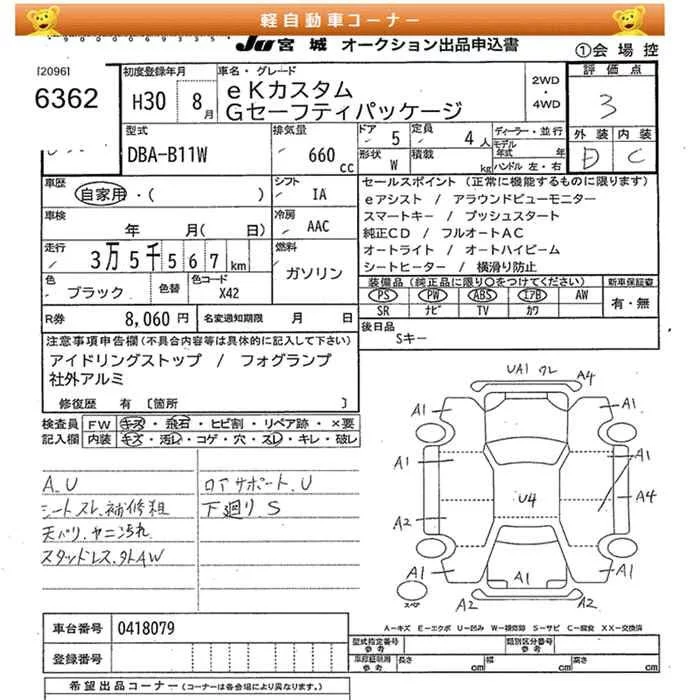 軽自動車コーナー
JU宮城 オークション出品申込書
①会場控
[2096]
6362
初度登録年月
H30 8月
車名・グレード
eKカスタム
Gセーフティパッケージ
2WD
・
4WD
評価点
3
外装 内装
D C
型式
DBA-B11W
排気量
660 cc
ドア 5
定員 4人
形状 W
積載 kg
ディーラー・並行
モデル年式 年
ハンドル 左・右
車歴
自家用・( )
シフト
IA
車検
年 月( 日)
冷房
AAC
走行
3万5千567km
燃料
ガソリン
色
ブラック
色替
色コード
X42
R券 8,060円
名変通知期限 月 日
セールスポイント(正常に機能するものに限ります)
eアシスト / アラウンドビューモニター
スマートキー / プッシュスタート
純正CD / フルオートAC
オートライト / オートハイビーム
シートヒーター / 横滑り防止
装備品(純正品に限り○をつけてください)
新車保証書
PS PW ABS エアB AW
SR ナビ TV カワ
有・無
後日品
Sキー
注意事項申告欄(不具合内容等は具体的に記入して下さい)
アイドリングストップ / フォグランプ
社外アルミ
修復歴 有 [箇所 ]
検査員記入欄
FW キズ・飛石・ヒビ割・リペア跡・×要
内装 キズ・汚レ・コゲ・穴・スレ・キレ・破レ
A.U
シートスレ.補修粗
天バリ.ヤニ汚れ
スタッドレス.外AW
ロアサポート.U
下廻り.S
UA1 ワレ
A4
A1 A1
A1 A1
U4
A4
A2
A1 A1 A1
スペア
A2 A2
A-キズ E-エクボ U-凹み W-補修跡 S-サビ C-腐食 XX-交換済
車台番号 0418079
登録番号
型式指定番号 参考
類別区分番号 参考
車庫証明用 参考
長さ cm
幅 cm
高さ cm
希望出品コーナー(コーナーは各会場により異なります。)